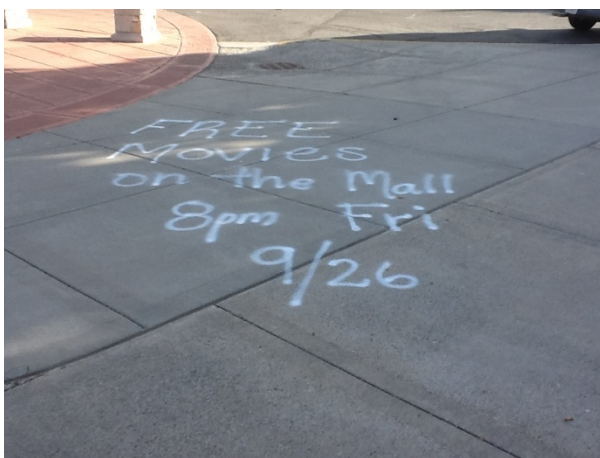 FREE
Movies
on the Mall
8pm Fri
9/26